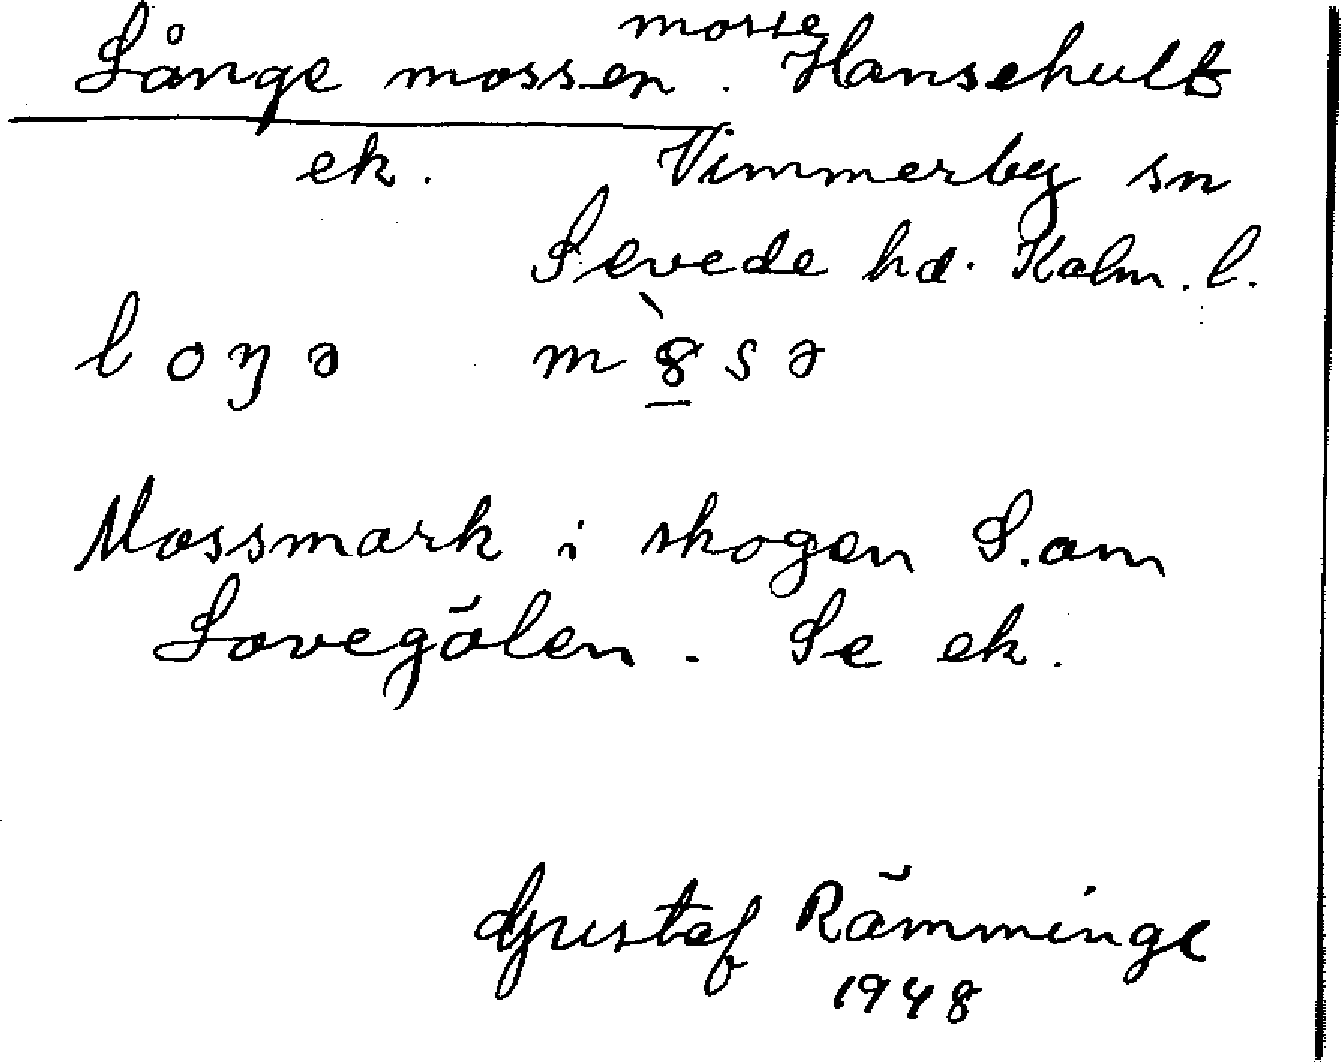 Långe mossen. mosse Hansehult
ek. Vimmerby sn
Sevede hd. Kalm. l.
loŋə m8̠̀sə
Mossmark i skogen S.om
Lovegölen. Se ek.
Gustaf Rämminge
1948